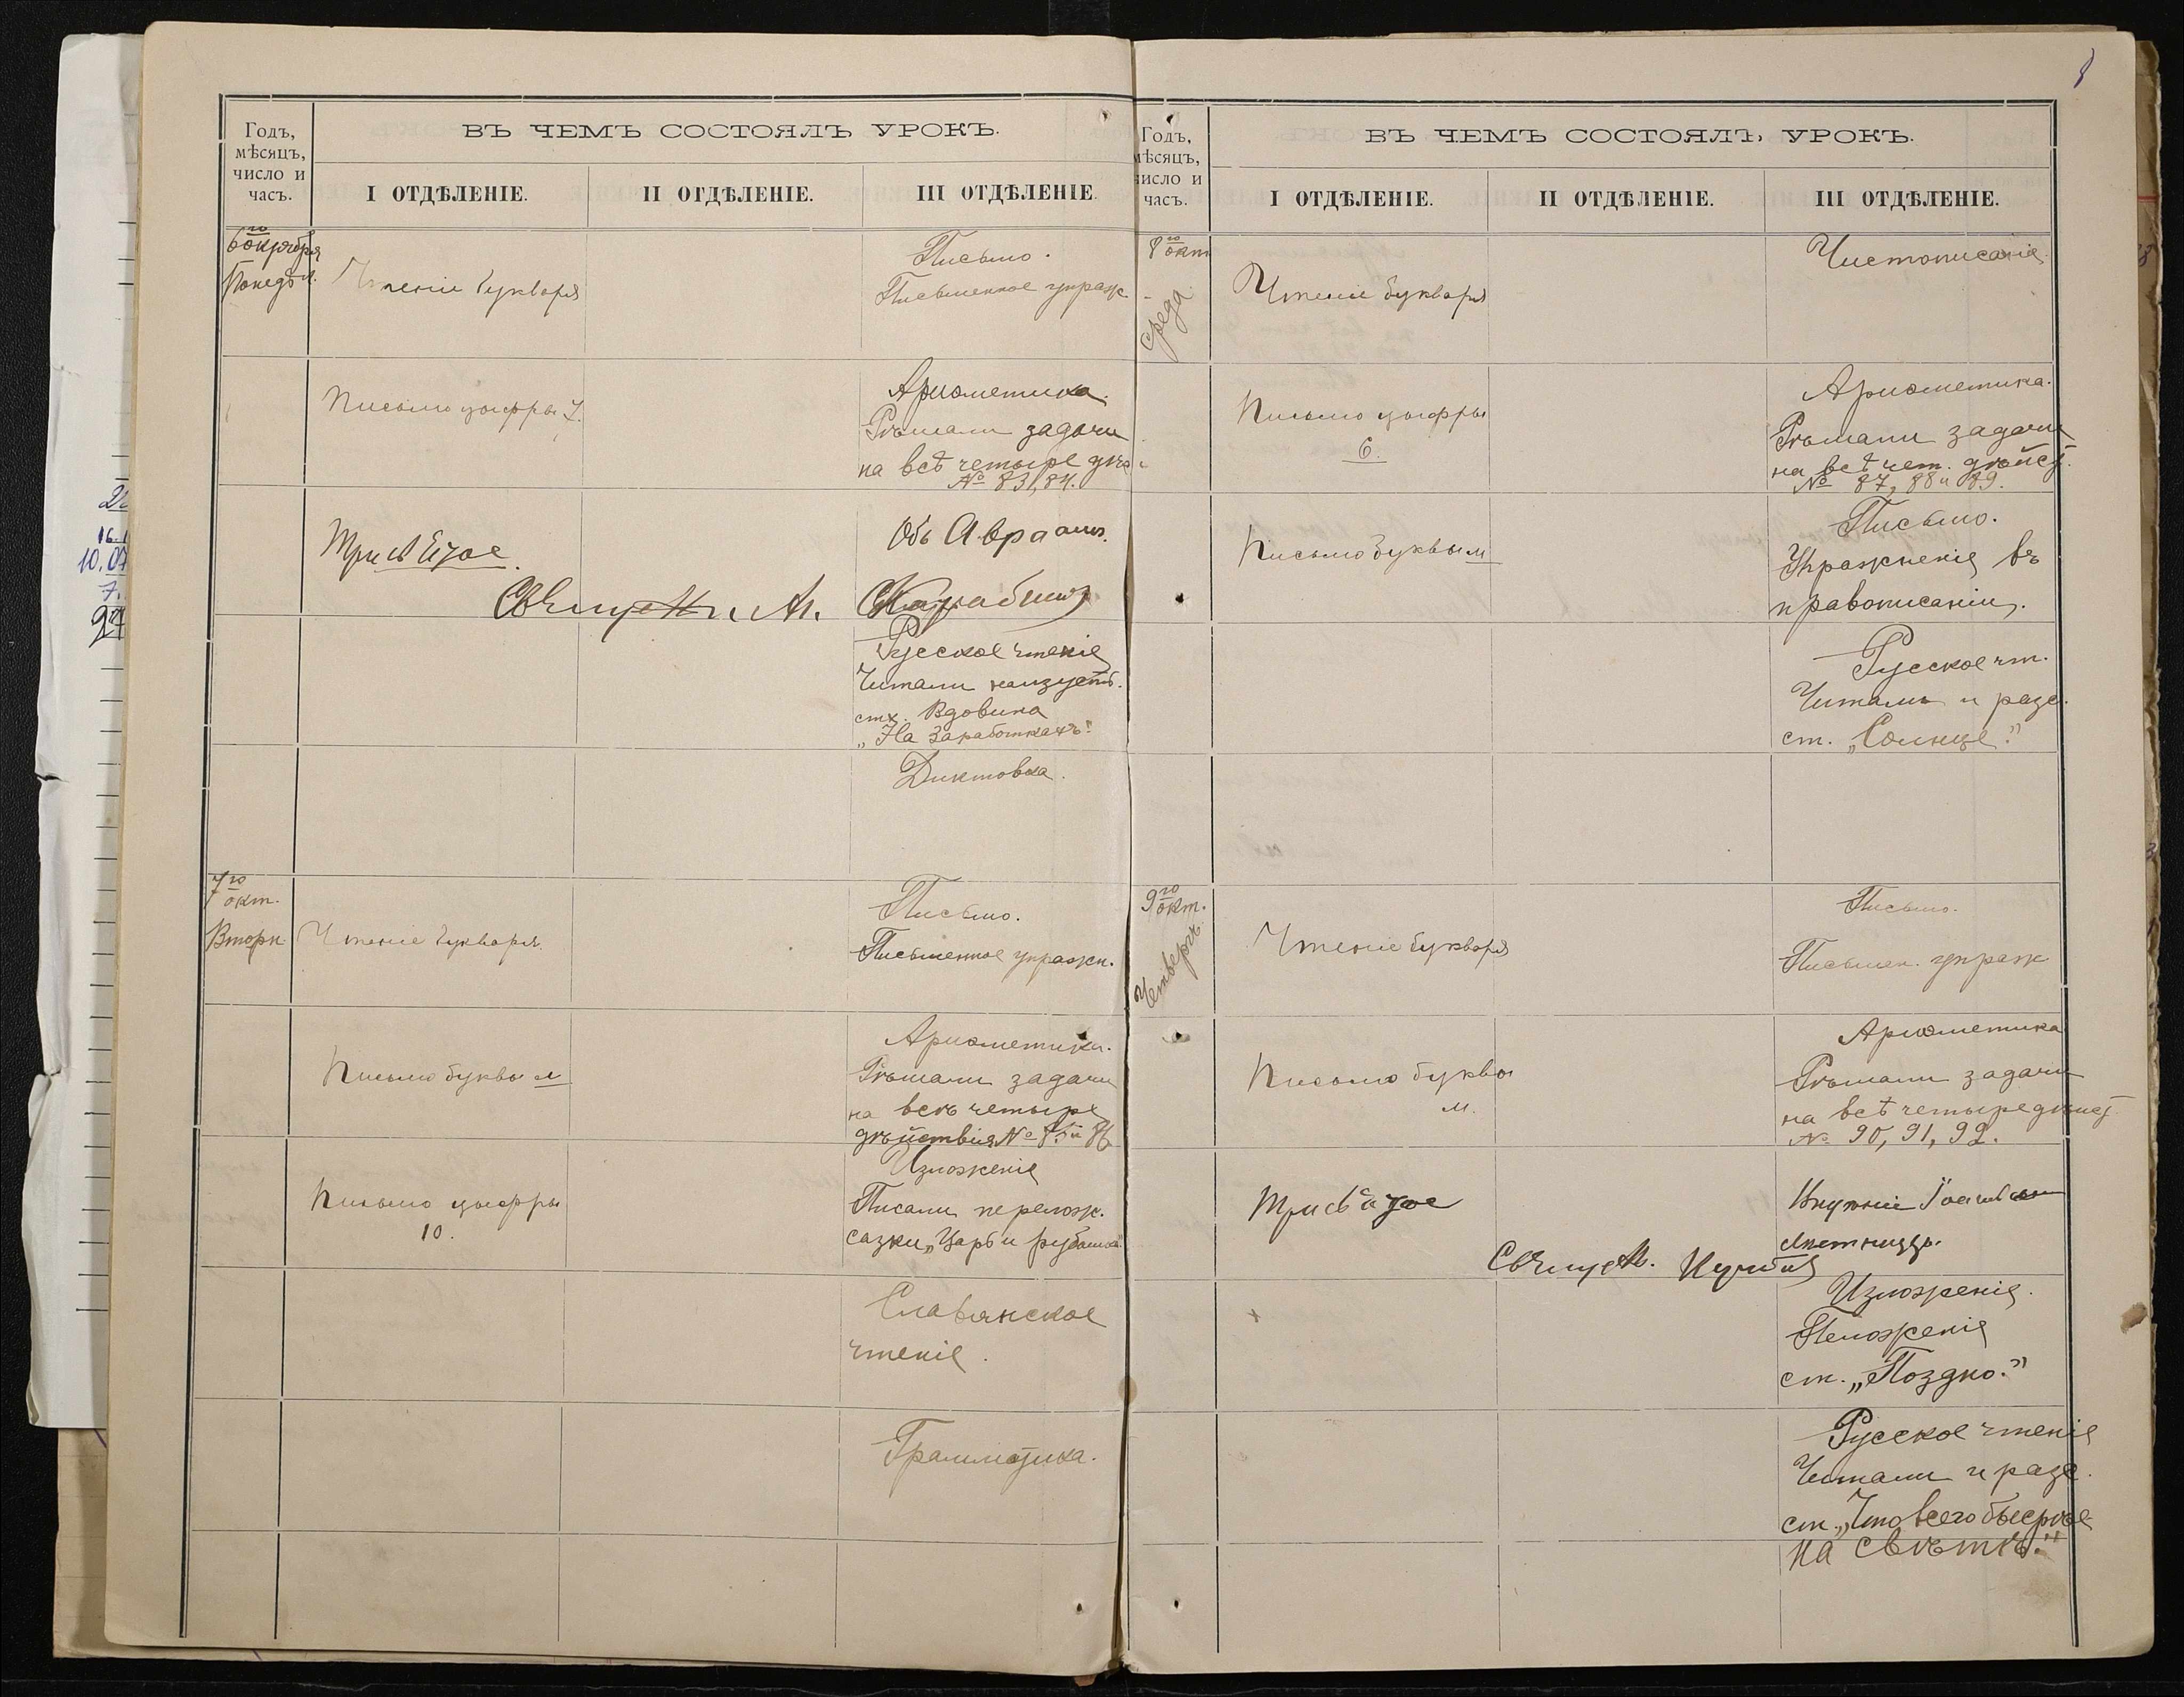 8
Годъ,
мѣсяцъ,
число и
часъ.
ВЪ ЧЕМЪ СОСТОЯЛЪ УРОКЪ.
I ОТДѢЛЕНІЕ.
II ОТДѢЛЕНІЕ.
III ОТДѢЛЕНІЕ.
6го октября
Понедѣл.
Чтеніе букваря
Письмо.
Письменное упраж.
Письмо цыфры 7.
Ариѳметика.
Рѣшали задачи
на всѣ четыре
№ 83, 84.
Трисвятое.
Объ Авраамѣ.
Священ. Ал.
Русское чтеніе
Читали наизусть.
стх. Вдовина
„На заработкахъ".
Диктовка.
7го окт.
Вторн.
Чтеніе букваря.
Письмо.
Письменное упражн.
Письмо буквы
Ариѳметика.
Рѣшали задачи
на всѣ четыре
дѣйствія № 85 и 86
Письмо цыфры
10.
Изложеніе
Писали перелож.
сазки „Царь и рубашка".
Славянское
чтеніе.
Грамматика.
Годъ,
мѣсяцъ,
число и
часъ.
ВЪ ЧЕМЪ СОСТОЯЛЪ УРОКЪ.
I ОТДѢЛЕНІЕ.
II ОТДѢЛЕНІЕ.
III ОТДѢЛЕНІЕ.
8го окт
среда
Чтеніе букваря
Чистописаніе.
Письмо цыфры
6.
Ариѳметика.
Рѣшали задачи
на всѣ чет. дѣйст.
№ 87, 88 и 89.
Письмо буквы м
Письмо.
Упражненія въ
правописаніи.
Русское чт.
Читали и разс.
ст. „Солнце."
9го окт.
Четвергъ.
Чтеніе букваря
Письмо.
Письмен. упраж
Письмо буквы
м.
Ариѳметика
Рѣшали задачи
на всѣ четыре дѣйст
№ 90, 91, 92.
Трисвятое
Священ.
Изложеніе.
ст. „Поздно."
Русское чтеніе
Читали и разс.
ст. „Что всего быстрѣе
на свѣтѣ."